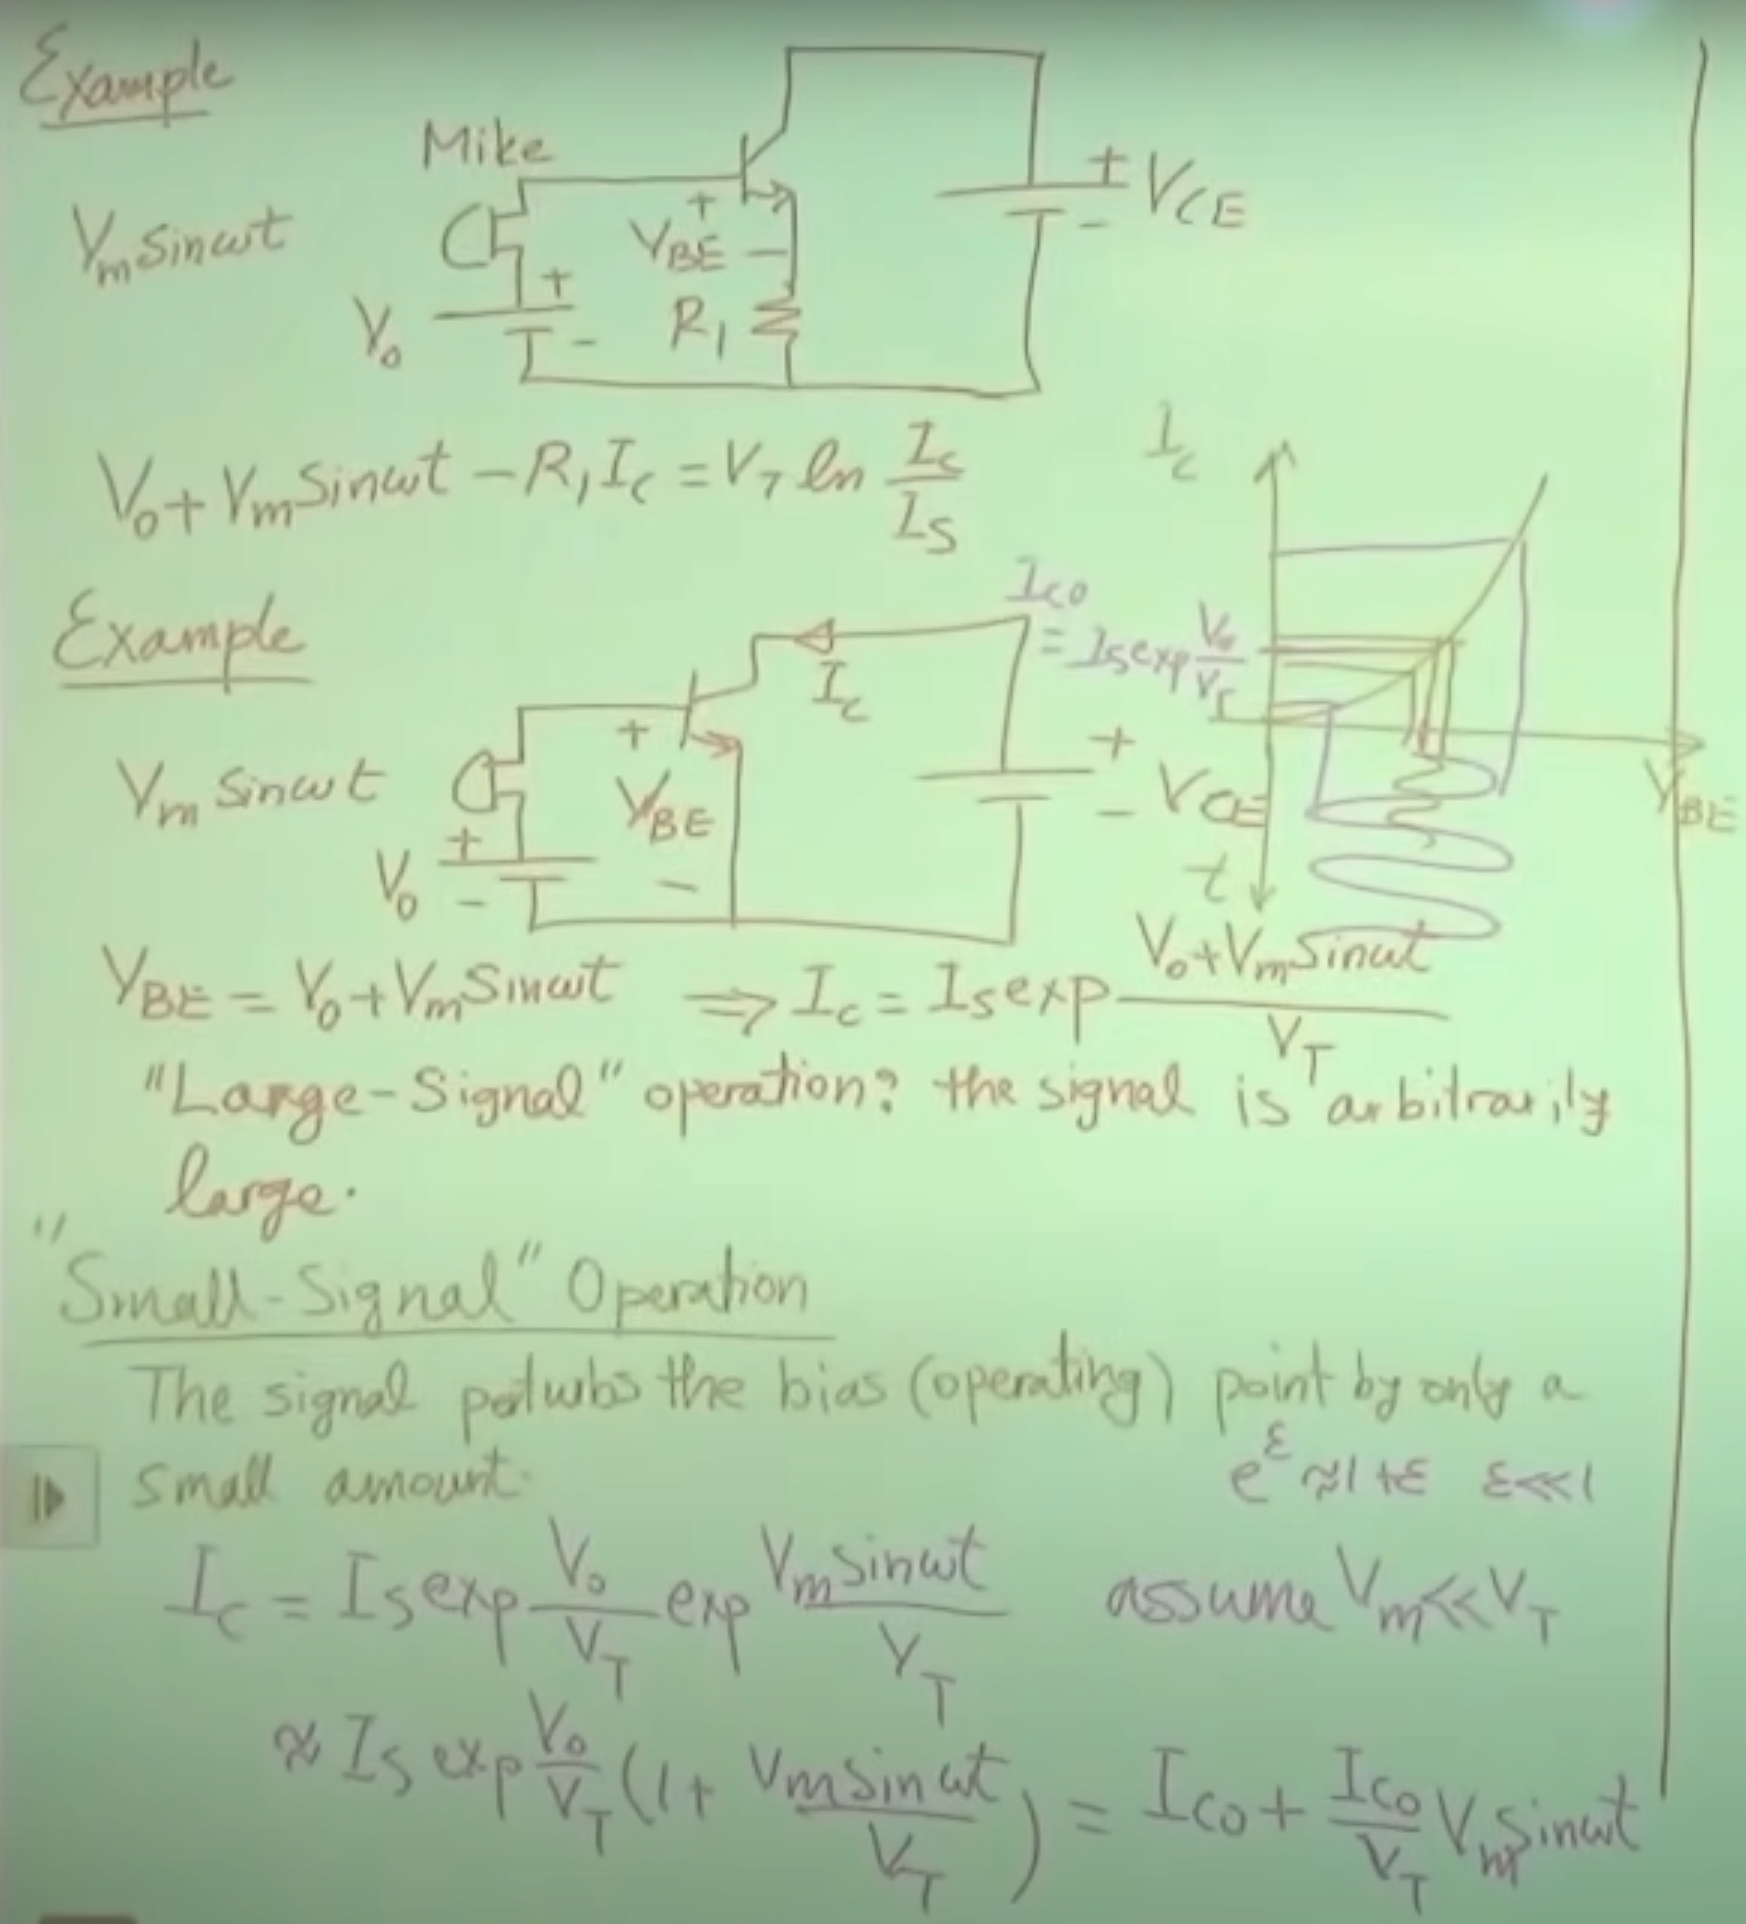 Example
Mike
Vm sinωt
+
VBE
-
+
VCE
-
V0
+
-
R1
V0 + Vm sinωt - R1 Ic = VT ln Ic/Is
Ic
Ic0
= Is exp V0/VT
Example
Ic
Vm sinωt
+
VBE
-
+
VCE
-
VBE
V0
+
-
t
VBE = V0 + Vm sinωt ⇒ Ic = Is exp (V0 + Vm sinωt)/VT
"Large-Signal" operation: the signal is arbitrarily
large.
"Small-Signal" Operation
The signal perturbs the bias (operating) point by only a
small amount.
e^ε ≈ 1 + ε ε ≪ 1
Ic = Is exp V0/VT exp Vm sinωt/VT assume Vm ≪ VT
≈ Is exp V0/VT (1 + Vm sinωt/VT) = Ic0 + Ic0/VT Vm sinωt